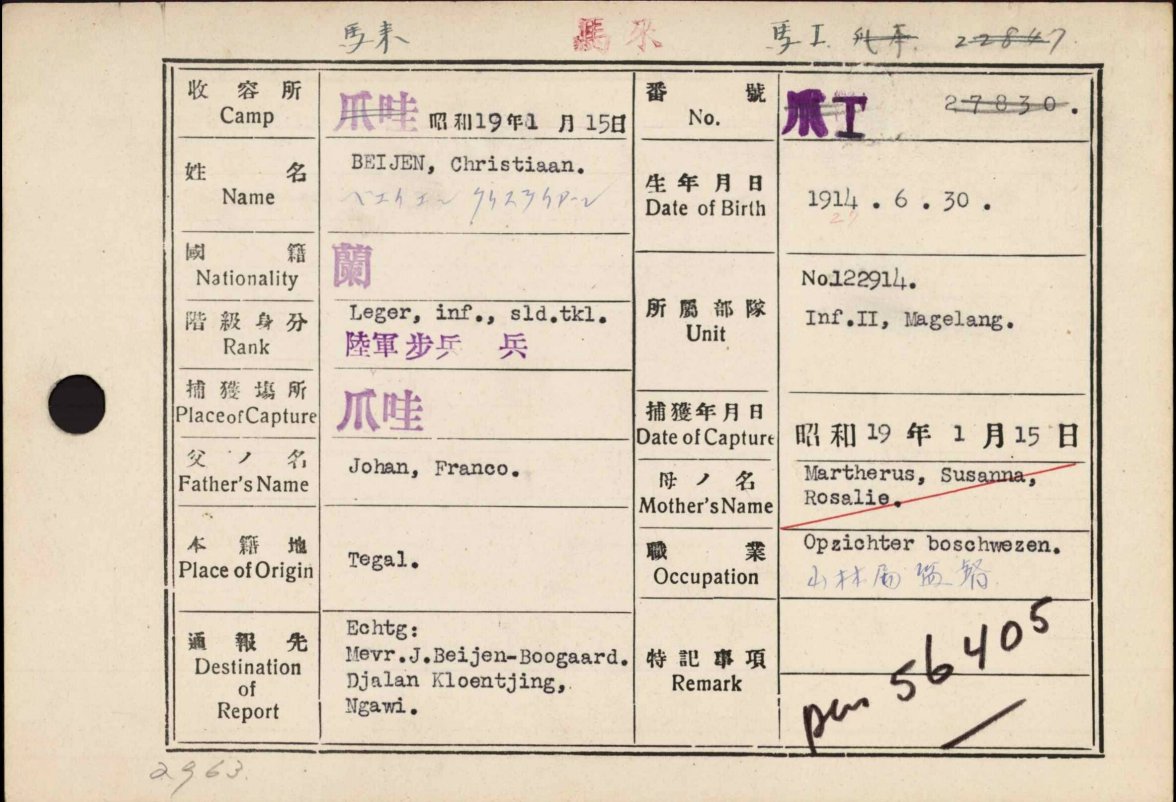 馬来 馬来 馬I. 22847
收容所 爪哇 昭和19年1月15日 番號 爪I 27830.
Camp No.
姓名 BEIJEN, Christiaan. 生年月日 1914.6.30.
Name Date of Birth
29
國籍 蘭 所屬部隊 No.122914.
Nationality Unit Inf.II, Magelang.
階級身分 Leger, inf., sld.tkl.
Rank 陸軍步兵 兵
捕獲場所 爪哇 捕獲年月日 昭和19年1月15日
Place of Capture Date of Capture
父ノ名 Johan, Franco. 母ノ名 Martherus, Susanna,
Father's Name Mother's Name Rosalie.
本籍地 Tegal. 職業 Opzichter boschwezen.
Place of Origin Occupation 山林局監督
通報先 Echtg: 特記事項
Destination Mevr.J.Beijen-Boogaard. Remark
of Djalan Kloentjing,
Report Ngawi.
56405
2963.